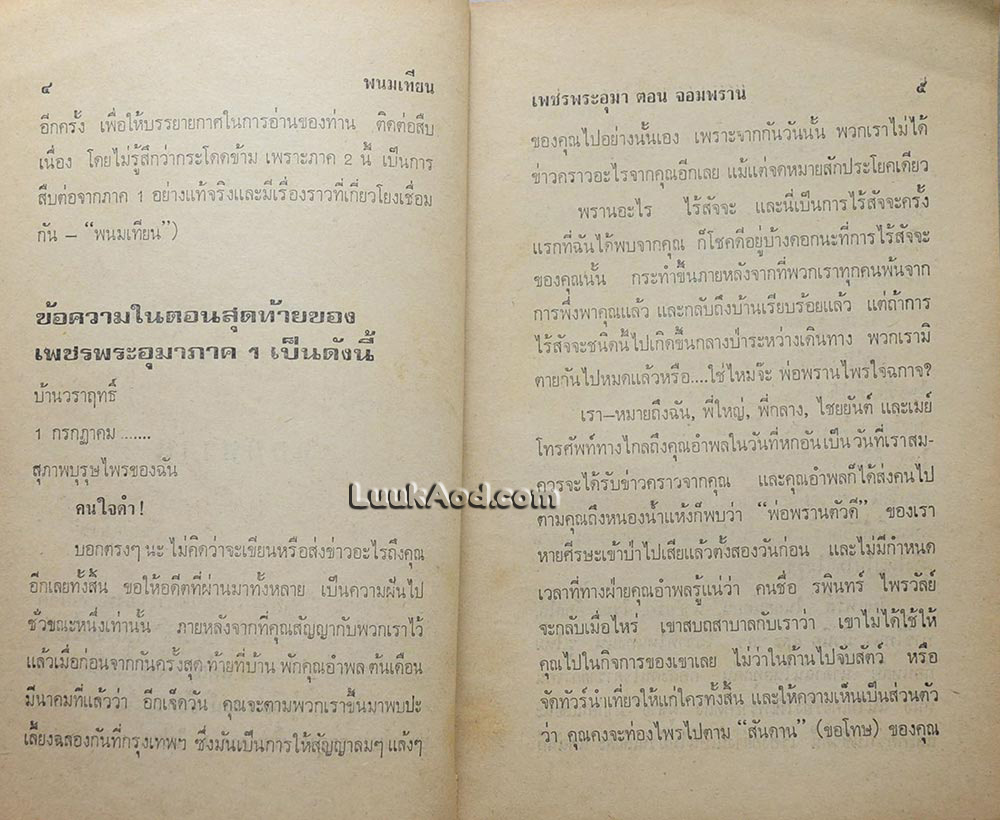 ๔ พนมเทียน
อีกครั้ง เพื่อให้บรรยายกาศในการอ่านของท่าน ติดต่อสืบ
เนื่อง โดยไม่รู้สึกว่ากระโดดข้าม เพราะภาค 2 นี้ เป็นการ
สืบต่อจากภาค 1 อย่างแท้จริงและมีเรื่องราวที่เกี่ยวโยงเชื่อม
กัน – “พนมเทียน”)
ข้อความในตอนสุดท้ายของ
เพชรพระอุมาภาค ๑ เป็นดังนี้
บ้านวราฤทธิ์
1 กรกฎาคม .......
สุภาพบุรุษไพรของฉัน
คนใจดำ!
บอกตรงๆ นะ ไม่คิดว่าจะเขียนหรือส่งข่าวอะไรถึงคุณ
อีกเลยทั้งสิ้น ขอให้อดีตที่ผ่านมาทั้งหลาย เป็นความฝันไป
ชั่วขณะหนึ่งเท่านั้น ภายหลังจากที่คุณสัญญากับพวกเราไว้
แล้วเมื่อก่อนจากกันครั้งสุด ท้ายที่บ้าน พักคุณอำพล ต้นเดือน
มีนาคมที่แล้วว่า อีกเจ็ดวัน คุณจะตามพวกเราขึ้นมาพบปะ
เลี้ยงฉลองกันที่กรุงเทพฯ ซึ่งมันเป็นการให้สัญญาลมๆ แล้งๆ
เพชรพระอุมา ตอน จอมพราน ๕
ของคุณไปอย่างนั้นเอง เพราะจากกันวันนั้น พวกเราไม่ได้
ข่าวคราวอะไรจากคุณอีกเลย แม้แต่จดหมายสักประโยคเดียว
พรานอะไร ไร้สัจจะ และนี่เป็นการไร้สัจจะครั้ง
แรกที่ฉันได้พบจากคุณ ก็โชคดีอยู่บ้างดอกนะที่การไร้สัจจะ
ของคุณนั้น กระทำขึ้นภายหลังจากที่พวกเราทุกคนพ้นจาก
การพึ่งพาคุณแล้ว และกลับถึงบ้านเรียบร้อยแล้ว แต่ถ้าการ
ไร้สัจจะชนิดนี้ไปเกิดขึ้นกลางป่าระหว่างเดินทาง พวกเรามิ
ตายกันไปหมดแล้วหรือ....ใช่ไหมจ๊ะ พ่อพรานไพรใจฉกาจ?
เรา–หมายถึงฉัน, พี่ใหญ่, พี่กลาง, ไชยยันต์ และเมย์
โทรศัพท์ทางไกลถึงคุณอำพลในวันที่หกอันเป็น วันที่เราสม-
ควรจะได้รับข่าวคราวจากคุณ และคุณอำพลก็ได้ส่งคนไป
ตามคุณถึงหนองน้ำแห้งก็พบว่า “พ่อพรานตัวดี” ของเรา
หายศีรษะเข้าป่าไปเสียแล้วตั้งสองวันก่อน และไม่มีกำหนด
เวลาที่ทางฝ่ายคุณอำพลรู้แน่ว่า คนชื่อ รพินทร์ ไพรวัลย์
จะกลับเมื่อไหร่ เขาสบถสาบาลกับเราว่า เขาไม่ได้ใช้ให้
คุณไปในกิจการของเขาเลย ไม่ว่าในด้านไปจับสัตว์ หรือ
จัดทัวร์นำเที่ยวให้แก่ใครทั้งสิ้น และให้ความเห็นเป็นส่วนตัว
ว่า คุณคงจะท่องไพรไปตาม “สันดาน” (ขอโทษ) ของคุณ
LuukAod.com